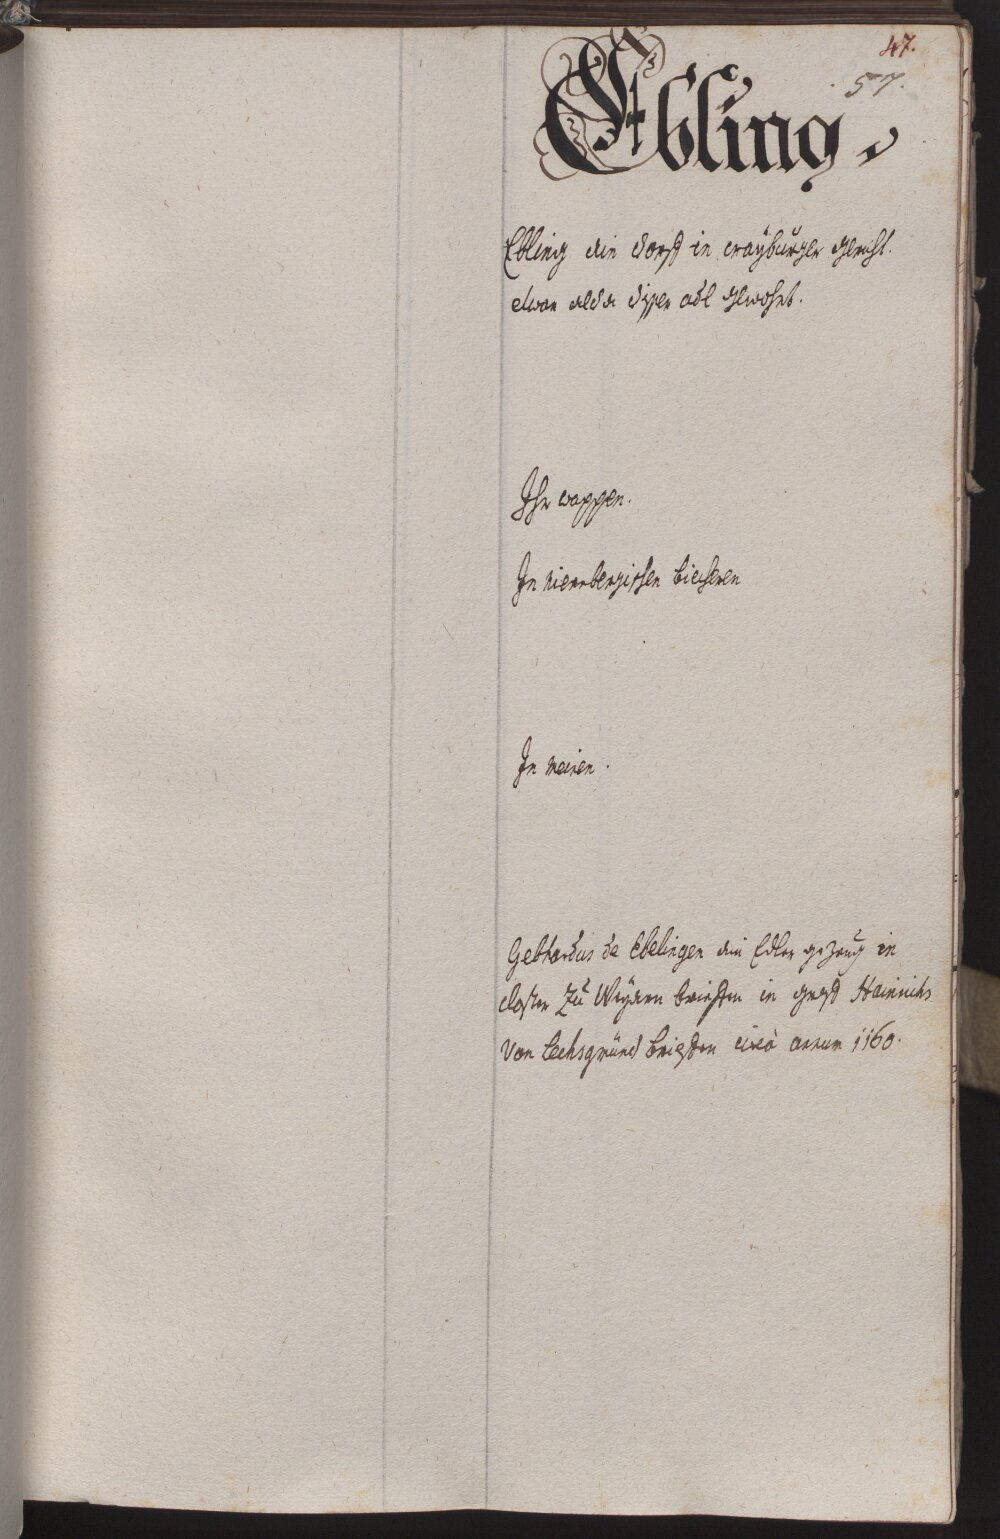 47.
57.
Ebling.
Ebling ain dorff in crayburger gericht.
etwan alda diser adl gewohnt.
Ihr wappen.
In niernbergischen biecheren
In meinen.
Gebhardus de Ebelingen ain Edler gezeug in
closter Zu Weyarn brieffen in graff Hainrichs
Von Lechsgmünd brieffen circa annum 1160.